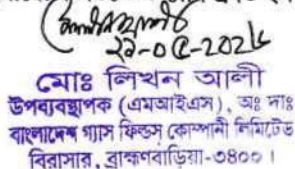 ২৯-০৫-202৫
মোঃ লিখন আলী
উপব্যবস্থাপক (এমআইএস), অঃ দাঃ
বাংলাদেশ গ্যাস ফিল্ডস্ কোম্পানী লিমিটেড
বিরাসার, ব্রাহ্মণবাড়িয়া-৩৪০০।